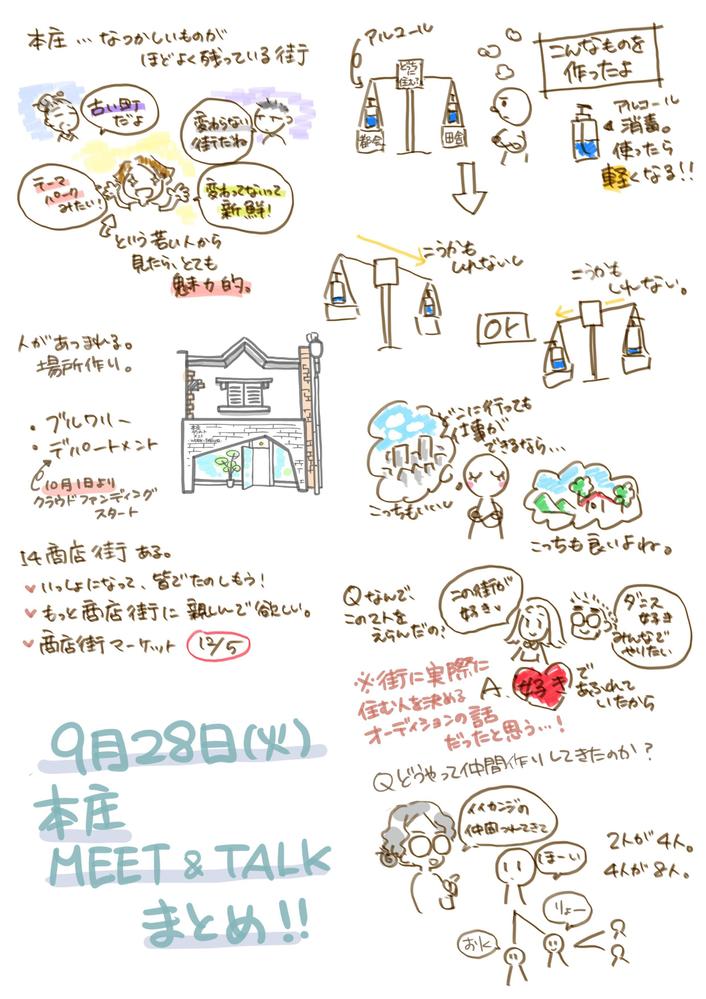 本庄…なつかしいものが
ほどよく残っている街
古い町
だよ
変わらない
街だね
テーマ
パーク
みたい!
変わってないって
新鮮!
という若い人から
見たら、とても
魅力的。
人があつまれる。
場所作り。
・ブルワリー
・デパートメント
10月1日より
クラウドファンディング
スタート
14商店街ある。
いっしょになって、皆でたのしもう!
もっと商店街に親しんで欲しい。
商店街マーケット 12/5
9月28日(火)
本庄
MEET & TALK
まとめ!!
アルコール
どっちに
住む?
都会
田舎
こんなものを
作ったよ
アルコール
消毒。
使ったら
軽くなる!!
こうかも
しれないし
OR
こうかも
しれない。
どこに行っても
仕事が
できるなら…
こっちもいいし
こっちも良いよね。
Qなんで、
この2人を
えらんだの?
この街が
好き
ダニス
好き
みんなで
やりたい
A. 好きで
あふれて
いたから
※街に実際に
住む人を決める
オーディションの話
だったと思う…!
Qどうやって仲間作りしてきたのか?
イイカンジの
仲間つれてきて
ほーい
りょー
おk
2人が4人。
4人が8人。